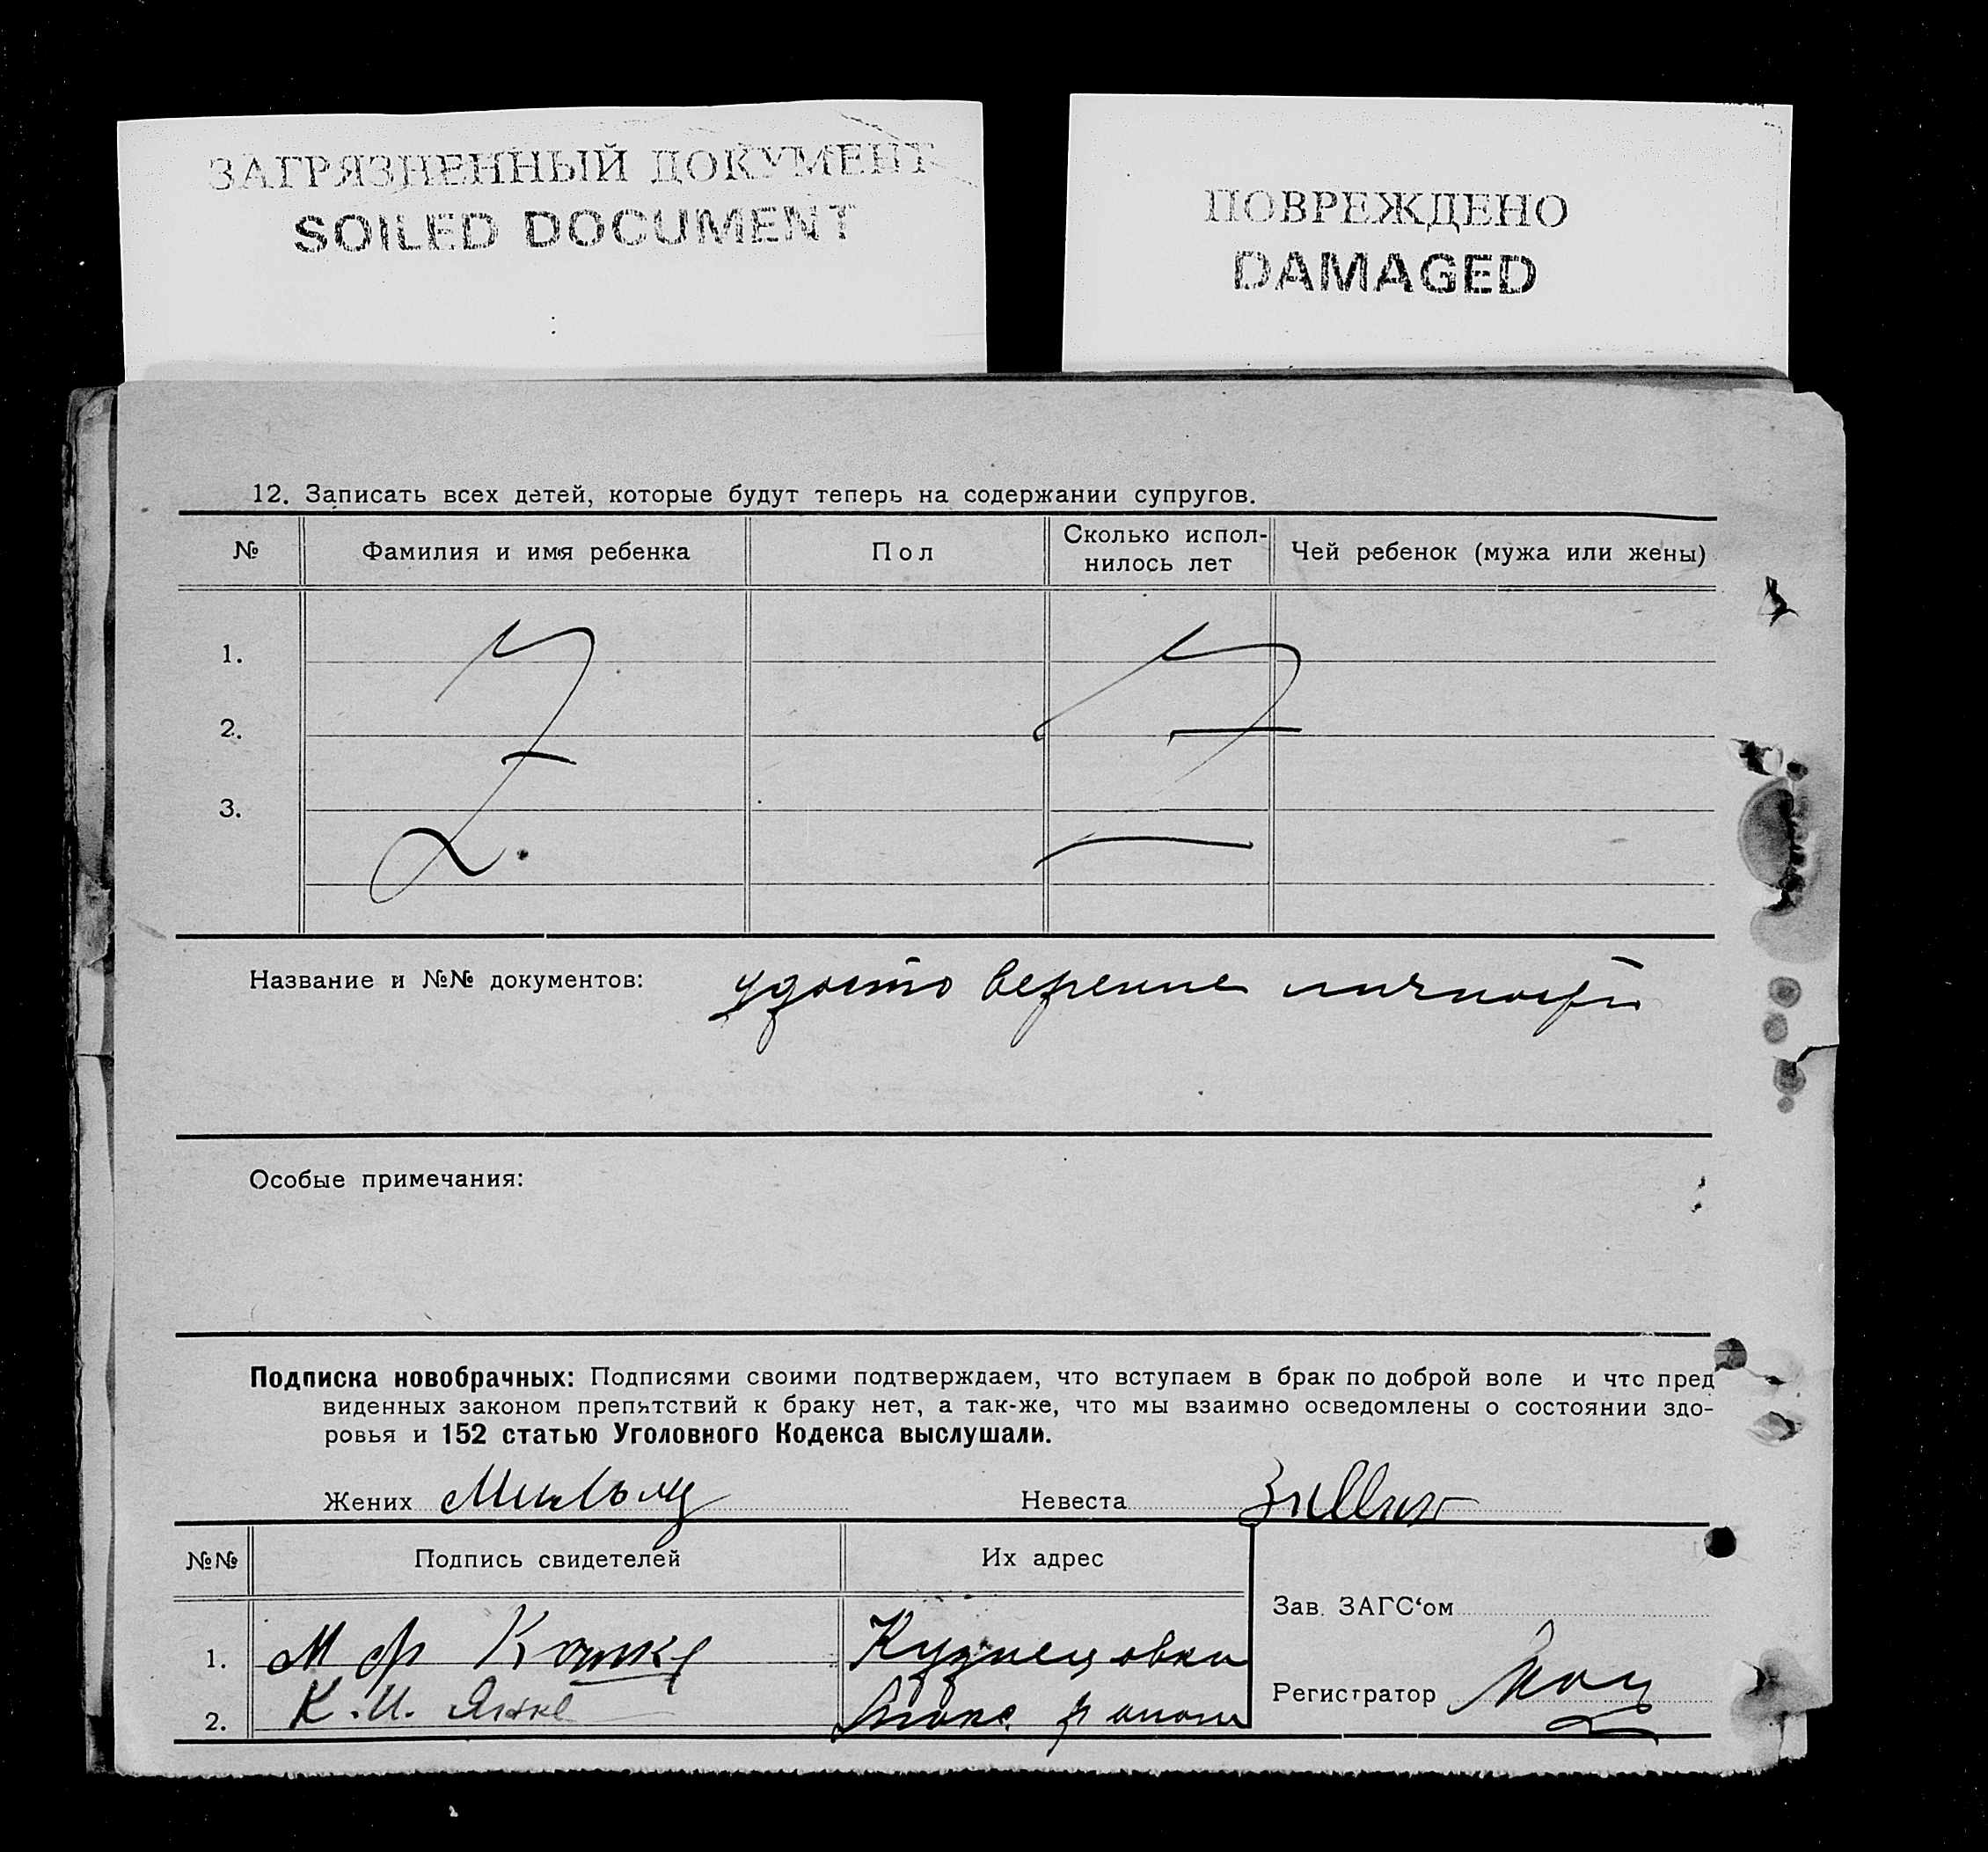 ЗАГРЯЗНЕННЫЙ ДОКУМЕНТ
SOILED DOCUMENT
ПОВРЕЖДЕНО
DAMAGED
12. Записать всех детей, которые будут теперь на содержании супругов.
№ Фамилия и имя ребенка Пол Сколько испол-нилось лет Чей ребенок (мужа или жены)
1.
2.
3.
Название и №№ документов: удостоверение личности
Особые примечания:
Подписка новобрачных: Подписями своими подтверждаем, что вступаем в брак по доброй воле и что пред
виденных законом препятствий к браку нет, а так-же, что мы взаимно осведомлены о состоянии здо-
ровья и 152 статью Уголовного Кодекса выслушали.
Жених Невеста
№№ Подпись свидетелей Их адрес
Зав. ЗАГС‘ом
1. М Ф Кузнецовка
Регистратор
2. К.И. Янке